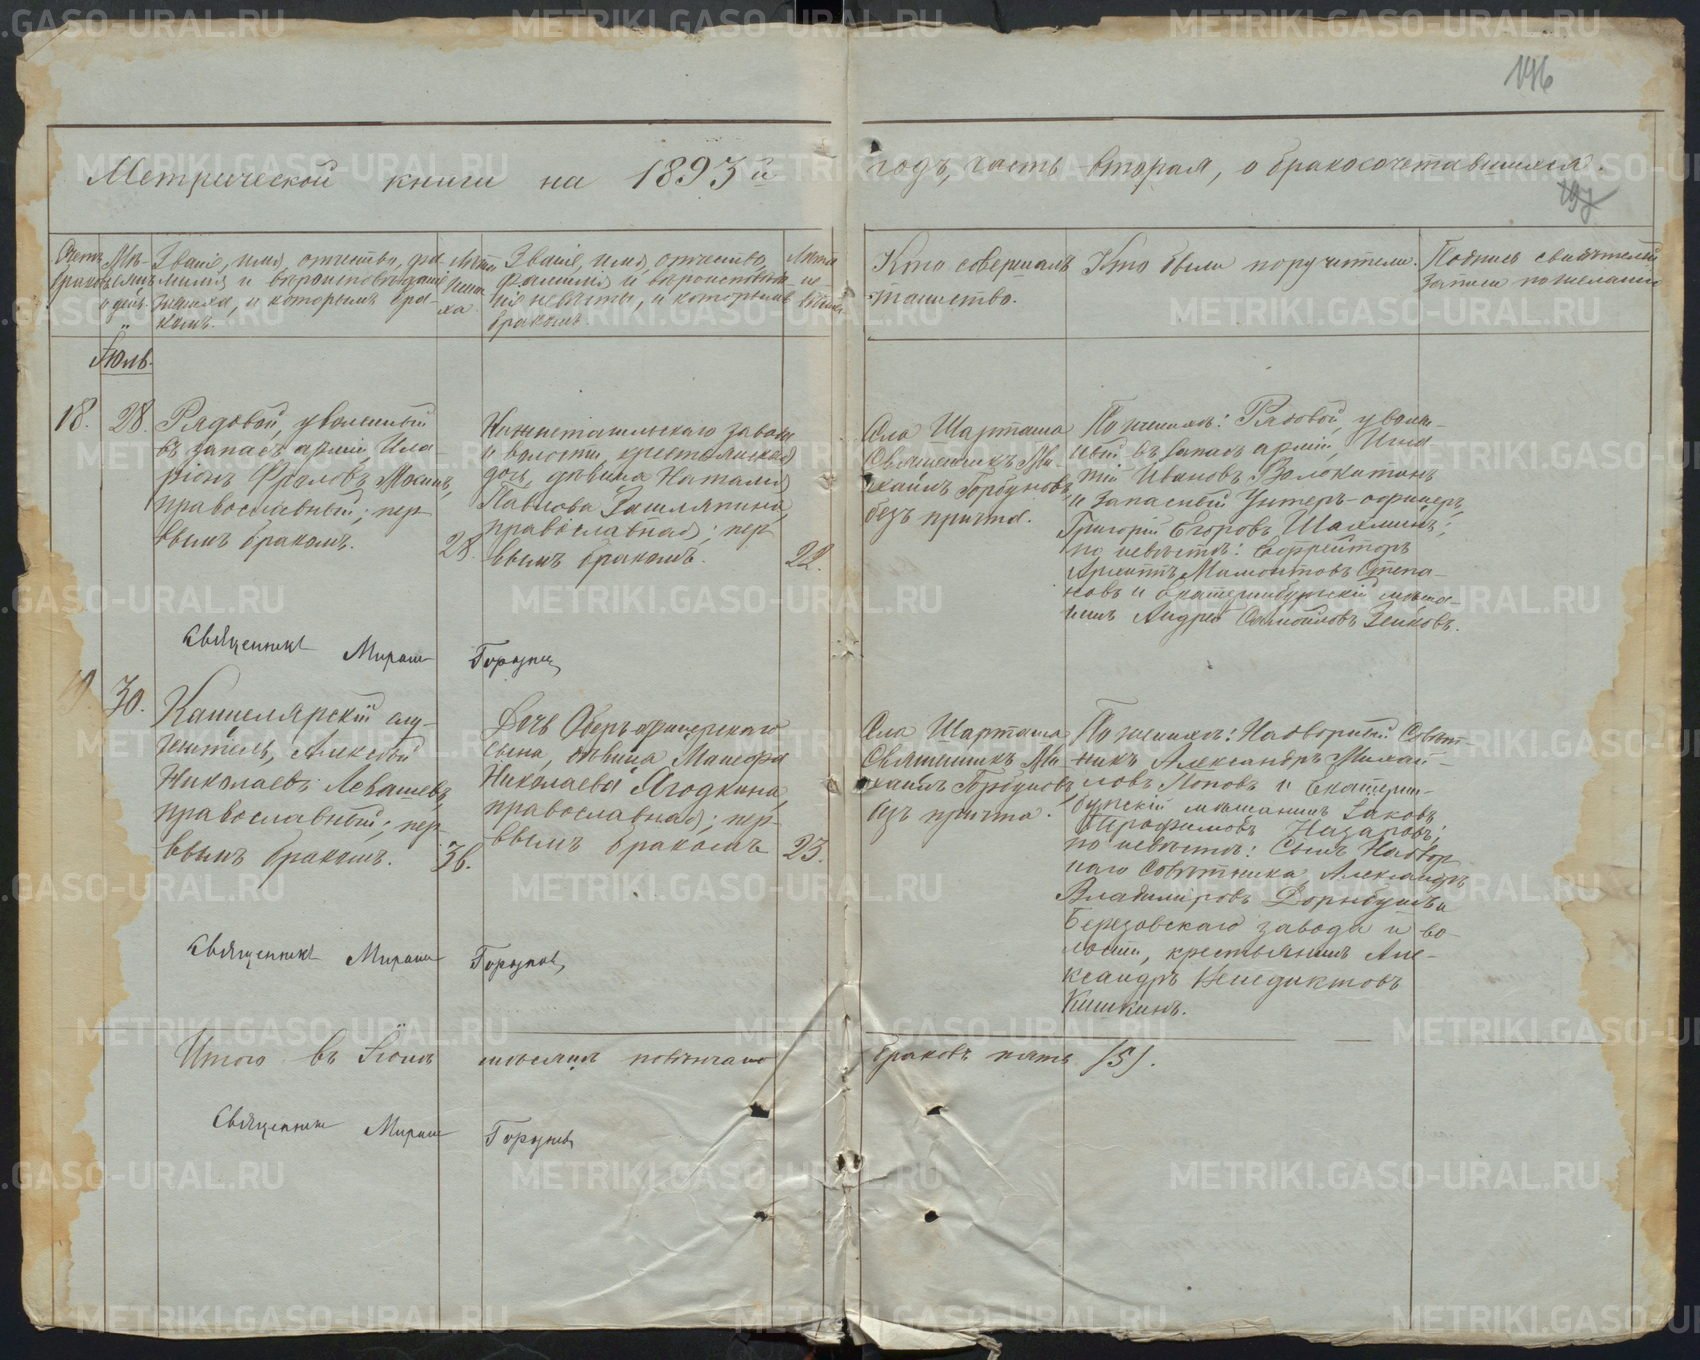 196
Метрической книги на 1893й годъ, часть вторая, о бракосочетавшихся.
197
Счетъ браковъ
Мѣсяцъ и день
Званіе, имя, отчество, фамилія и вѣроисповѣданіе жениха, и которымъ бракомъ.
Лѣта жениха
Званіе, имя, отчество, фамилія и вѣроисповѣданіе невѣсты, и которымъ бракомъ.
Лѣта невѣсты
Кто совершалъ таинство.
Кто были поручители.
Подпись свидѣтелей записи по желанію
Іюль.
18.
28.
Рядовой, уволенный
въ запасъ арміи, Ила-
ріонъ Фроловъ Мокинъ,
православный; пер-
вымъ бракомъ.
28.
Нижнетагильскаго завода
и волости, крестьянская
дочь, дѣвица Наталья
Павлова
православная; пер-
вымъ бракомъ.
22.
Села Шарташа
Священникъ Ми-
хаилъ Горбуновъ
безъ причта.
По женихѣ: Рядовой, уволен-
ный въ запасъ арміи, Игна-
тій Ивановъ Волокитинъ
и Запасный Унтеръ-офицеръ,
Григорій Егоровъ
по невѣстѣ: Ефрейторъ
Мамонтовъ Степа-
новъ и Екатеринбургскій мѣща-
нинъ Андрей Самойловъ Зенковъ.
Священникъ Михаилъ Горбуновъ
19
30.
Канцелярскій слу-
житель, Алексѣй
Николаевъ Левашевъ,
православный; пер-
вымъ бракомъ.
36.
Дочь Оберъ-офицерскаго
сына, дѣвица Манефа
Николаева Ягодкина,
православная; пер-
вымъ бракомъ
23.
Села Шарташа
Священникъ Ми-
хаилъ Горбуновъ,
безъ причта.
По женихѣ: Надворный Совѣт-
никъ Александръ Михай-
ловъ Поповъ и Екатерин-
бургскій мѣщанинъ Іаковъ
Трофимовъ Назаровъ;
по невѣстѣ: Сынъ Надвор-
наго Совѣтника, Александръ
Владиміровъ Дорнбушъ и
Березовскаго завода и во-
лости, крестьянинъ Але-
ксандръ Венедиктовъ
Кишкинъ.
Священникъ Михаилъ Горбуновъ
Итого въ Іюлѣ мѣсяцѣ повѣнчано браковъ пять (5).
Священникъ Михаилъ Горбуновъ
METRIKI.GASO-URAL.RU